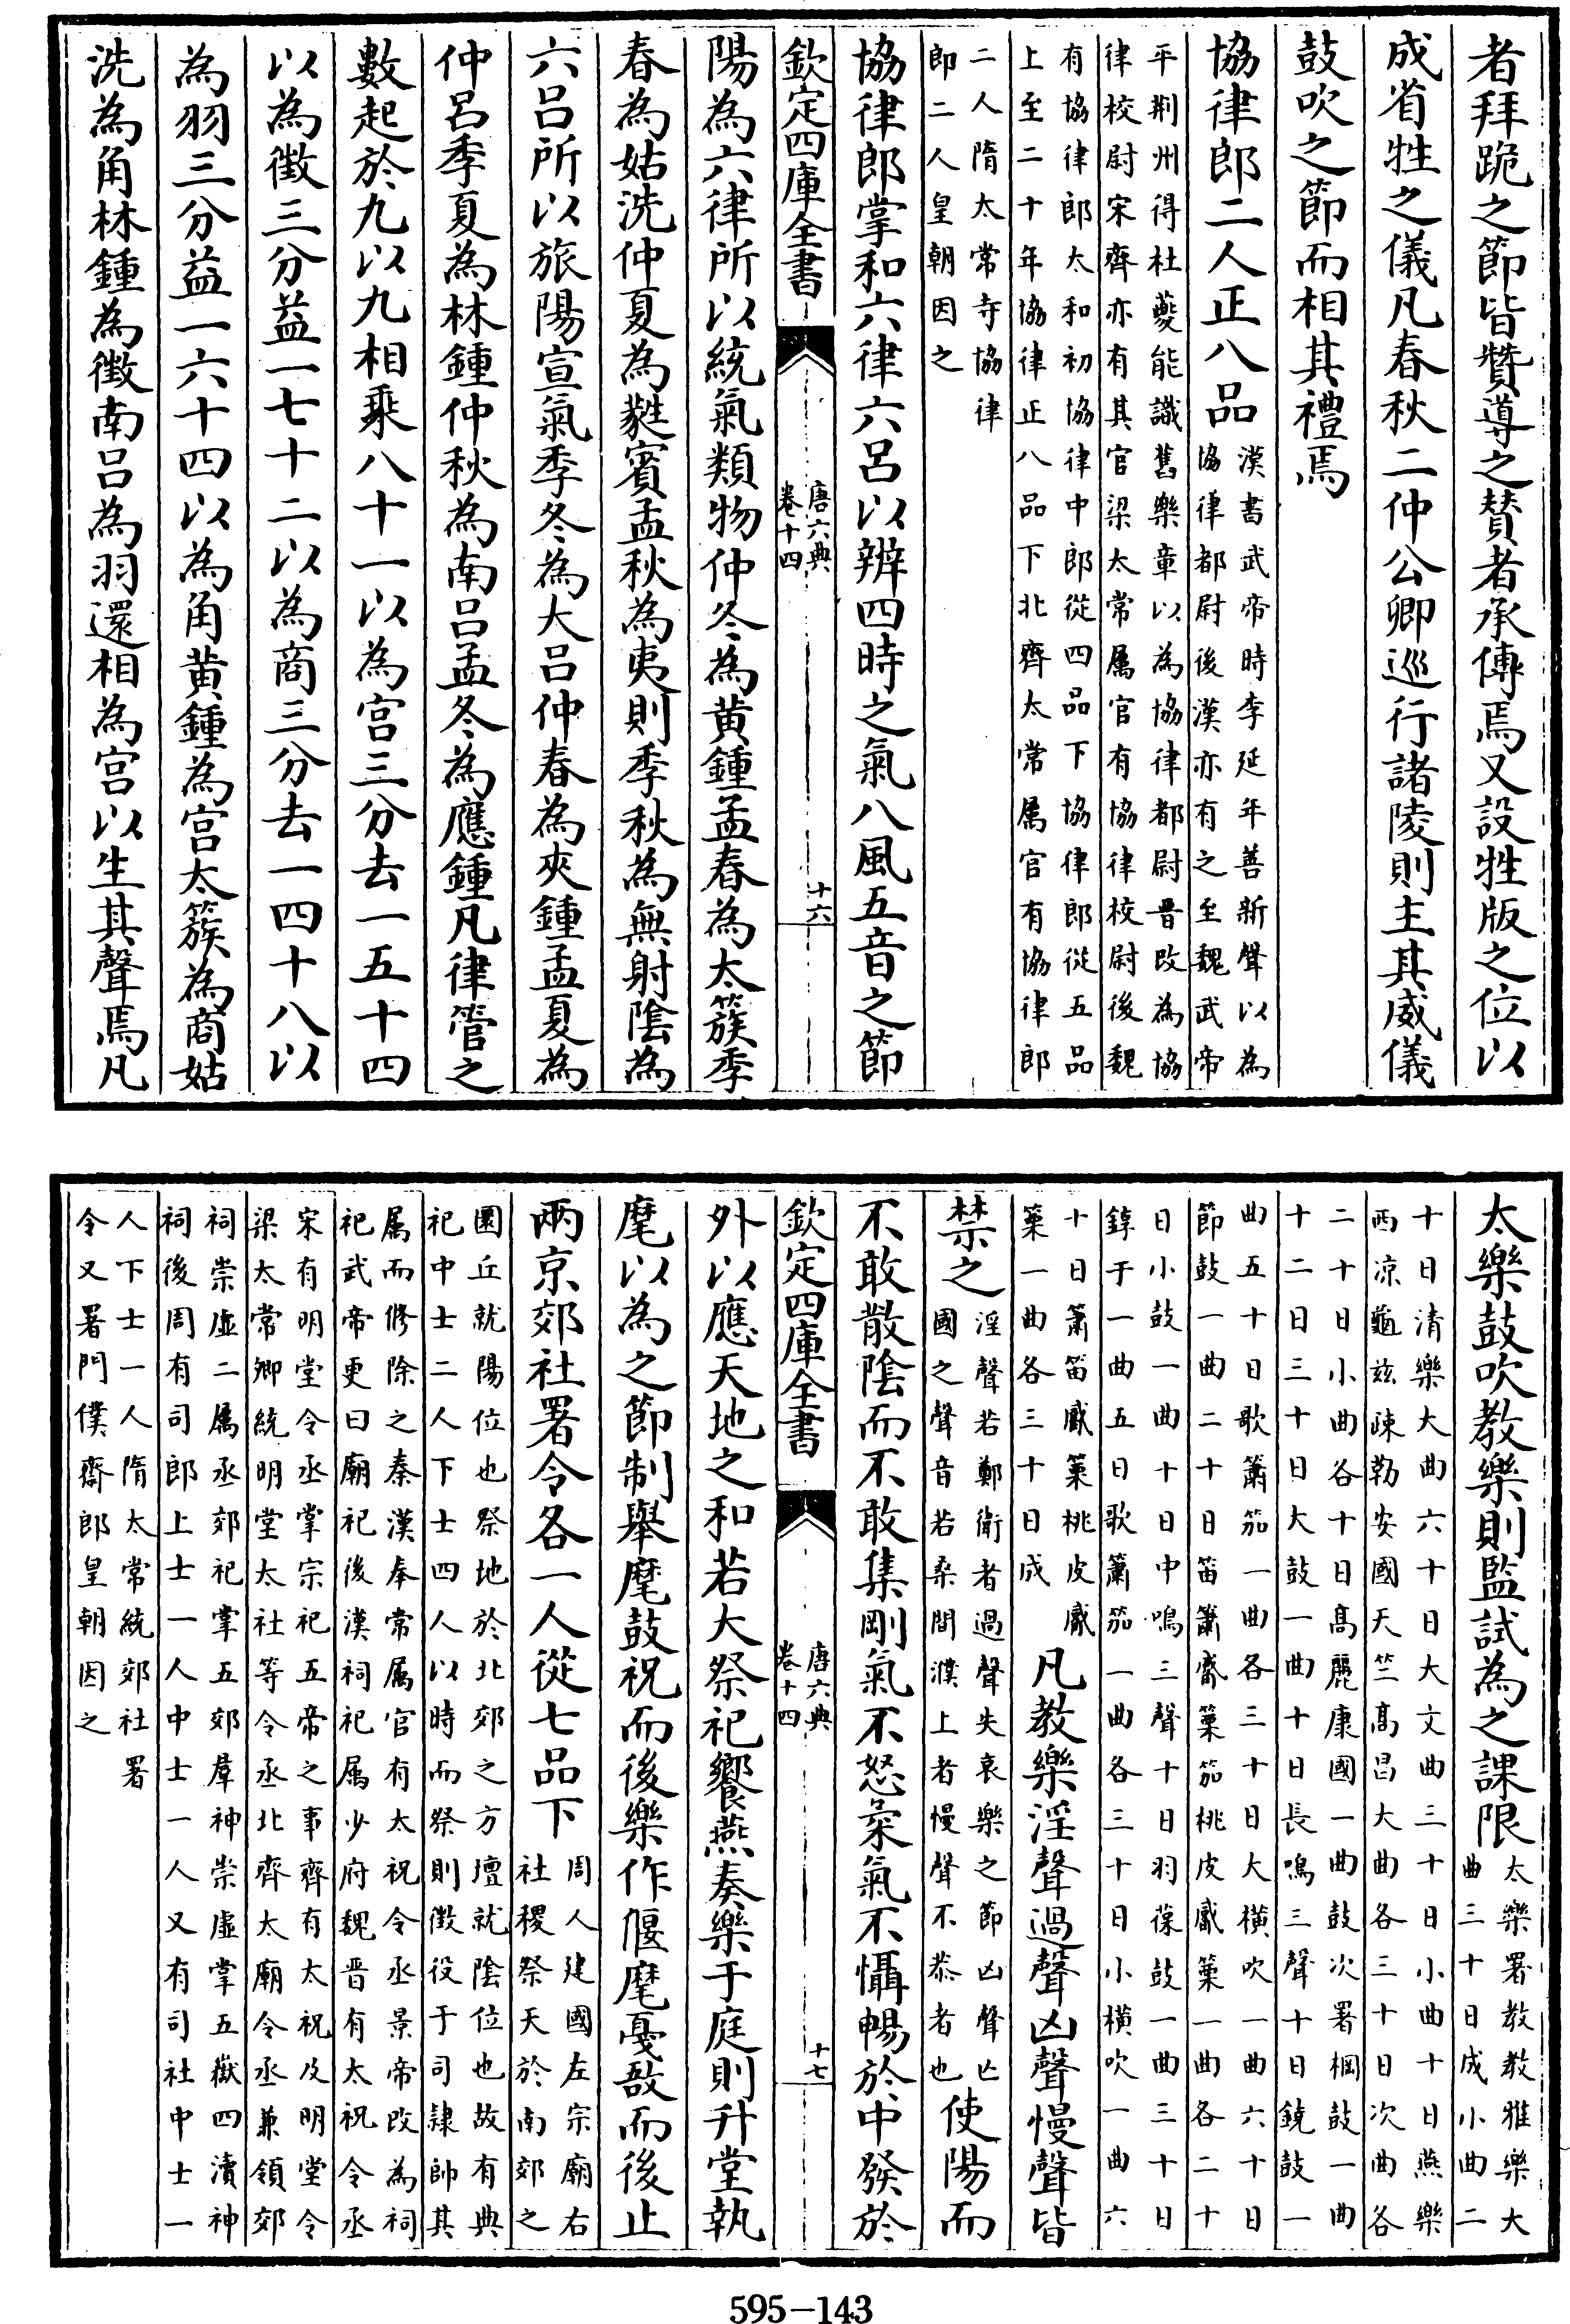 者拜跪之節皆贊導之賛者承傳焉又設牲版之位以
成省牲之儀凡春秋二仲公卿巡行諸陵則主其威儀
鼓吹之節而相其禮焉
協律郎二人正八品
漢書武帝時李延年善新聲以為
協律都尉後漢亦有之至魏武帝
平荆州得杜夔能識舊樂章以為協律都尉晉改為協
律校尉宋齊亦有其官梁太常属官有協律校尉後魏
有協律郎太和初協律中郎從四品下協律郎從五品
上至二十年協律正八品下北齊太常属官有協律郎
二人隋太常寺協律
郎二人皇朝因之
協律郎掌和六律六呂以辨四時之氣八風五音之節
欽定四庫全書
唐六典
卷十四
十六
陽為六律所以統氣類物仲冬為黄鍾孟春為太簇季
春為姑洗仲夏為蕤賓孟秋為夷則季秋為無射隂為
六呂所以旅陽宣氣季冬為大呂仲春為夾鍾孟夏為
仲呂季夏為林鍾仲秋為南呂孟冬為應鍾凡律管之
數起於九以九相乘八十一以為宫三分去一五十四
以為徵三分益一七十二以為商三分去一四十八以
為羽三分益一六十四以為角黄鍾為宫太簇為商姑
洗為角林鍾為徵南呂為羽還相為宫以生其聲焉凡
太樂鼓吹教樂則監試為之課限
太樂署教教雅樂大
曲三十日成小曲二
十日清樂大曲六十日大文曲三十日小曲十日燕樂
西凉龜兹疎勒安國天竺髙昌大曲各三十日次曲各
二十日小曲各十日髙麗康國一曲鼓次署棡鼓一曲
十二日三十日大鼓一曲十日長鳴三聲十日鐃鼓一
曲五十日歌簫笳一曲各三十日大橫吹一曲六十日
節鼓一曲二十日笛簫觱篥笳桃皮觱篥一曲各二十
日小鼓一曲十日中鳴三聲十日羽葆鼓一曲三十日
錞于一曲五日歌簫笳一曲各三十日小橫吹一曲六
十日簫笛觱篥桃皮觱
篥一曲各三十日成
凡教樂淫聲過聲凶聲慢聲皆
禁之
淫聲若鄭衛者過聲失哀樂之節凶聲亡
國之聲音若桑間濮上者慢聲不恭者也
使陽而
不敢散隂而不敢集剛氣不怒柔氣不懾暢於中發於
欽定四庫全書
唐六典
卷十四
十七
外以應天地之和若大祭祀饗燕奏樂于庭則升堂執
麾以為之節制舉麾鼓柷而後樂作偃麾戛敔而後止
兩京郊社署令各一人從七品下
周人建國左宗廟右
社稷祭天於南郊之
圜丘就陽位也祭地於北郊之方壇就陰位也故有典
祀中士二人下士四人以時而祭則徵役于司隷帥其
属而修除之秦漢奉常属官有太祝令丞景帝改為祠
祀武帝更曰廟祀後漢祠祀属少府魏晋有太祝令丞
宋有明堂令丞掌宗祀五帝之事齊有太祝及明堂令
梁太常卿統明堂太社等令丞北齊太廟令丞兼領郊
祠崇虛二属丞郊祀掌五郊羣神崇虛掌五嶽四瀆神
祠後周有司郎上士一人中士一人又有司社中士一
人下士一人隋太常統郊社署
令又署門僕齋郎皇朝因之
595—143